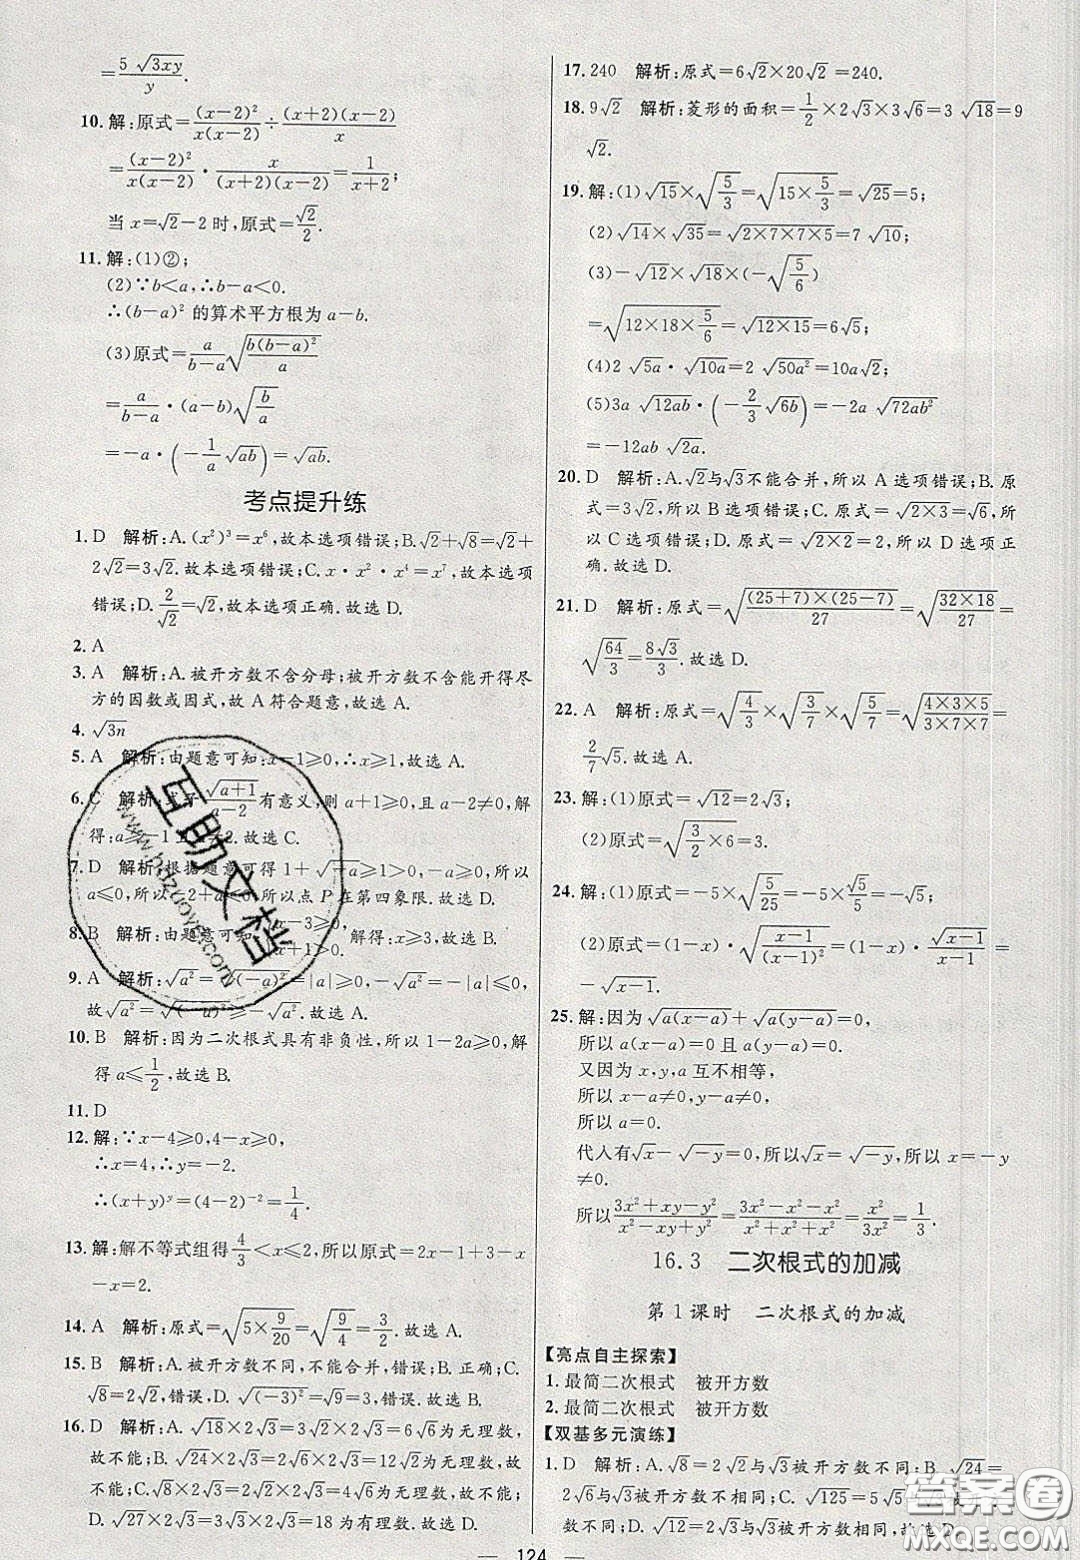 =5√(3xy)/y.
10. 解:原式=(x-2)²/x(x-2)÷(x+2)(x-2)/x
=(x-2)²/x(x-2)·x/(x+2)(x-2)=1/(x+2);
当 x=√2-2 时,原式=√2/2.
11. 解:(1)②;
(2)∵b<a,∴b-a<0.
∴(b-a)² 的算术平方根为 a-b.
(3)原式=a/(b-a)√(b(b-a)²/a)
=a/(b-a)·(a-b)√(b/a)
=-a·(-1/a√ab)=√ab.
考点提升练
1. D 解析:A.(x²)³=x⁶,故本选项错误;B.√2+√8=√2+
2√2=3√2.故本选项错误;C.x·x²·x⁴=x⁷,故本选项
错误;D.2/√2=√2,故本选项正确.故选 D.
2. A
3. A 解析:A.被开方数不含分母;被开方数不含能开得尽
方的因数或因式,故 A 符合题意,故选 A.
4. √3n
5. A 解析:由题意可知:x-1≥0,∴x≥1,故选 A.
6. C 解析:式子√(a+1)/(a-2)有意义,则 a+1≥0,且 a-2≠0,解
得:a≥-1 且 a≠2.故选 C.
7. D 解析:根据题意可得 1+√-a≥1>0,-a≥0,所以
a≤0,所以-2+a<0.所以点 P 在第四象限.故选 D.
8. B 解析:由题意可知 x-3≥0, x+1≥0, 解得:x≥3,故选 B.
9. A 解析:√a²=√(-a)²=|a|≥0,-√a²=-|a|≤0,
故√a²=√(-a)²≥-√a².故选 A.
10. B 解析:因为二次根式具有非负性,所以 1-2a≥0,解
得 a≤1/2,故选 B.
11. D
12. 解:∵x-4≥0,4-x≥0,
∴x=4,∴y=-2.
∴(x+y)ʸ=(4-2)⁻²=1/4.
13. 解:解不等式组得4/3<x≤2,所以原式=2x-1+3-x
=x+2.
14. A 解析:原式=√(5×9/20)=√(9/4)=3/2.故选 A.
15. B 解析:A.被开方数不同,不能合并,错误;B.正确;C.
√8=2√2,错误,D.√(-3)²=√9=3,错误.故选 B.
16. D 解析:A.√18×2√3=3√2×2√3=6√6为无理数,
故不能;B.√24×2√3=2√6×2√3=12√2为无理数,故
不能;C.√12×√6=2√3×√6=6√2为无理数,故不能;
D.√27×2√3=3√3×2√3=18 为有理数.故选 D.
17. 240 解析:原式=6√2×20√2=240.
18. 9√2 解析:菱形的面积=1/2×2√3×3√6=3√18=9
√2.
19. 解:(1)√15×√(5/3)=√(15×5/3)=√25=5;
(2)√14×√35=√(2×7×7×5)=7√10;
(3)-√12×√18×(-√(5/6)(
=√(12×18×5/6)=√(12×15)=6√5;
(4)2√5a·√10a=2√50a²=10√2a;
(5)3a√12ab·(-2/3√6b)=-2a√72ab²
=-12ab√2a.
20. D 解析:A.√2与√3不能合并,所以 A 选项错误;B.原
式=3√2,所以 B 选项错误;C.原式=√(2×3)=√6,所
以 C 选项错误;D.原式=√(2×2)=2,所以 D 选项正
确.故选 D.
21. D 解析:原式=√((25+7)×(25-7)/27)=√(32×18/27)=
√(64/3)=8√3/3.故选 D.
22. A 解析:原式=√(4/3)×√(3/7)×√(5/7)=√(4×3×5/3×7×7)=
2/7√5.故选 A.
23. 解:(1)原式=√12=2√3;
(2)原式=√(3/2×6)=3.
24. 解:(1)原式=-5×√(5/25)=-5×√5/5=-√5;
(2)原式=(1-x)·√((x-1)/(x-1)²)=(1-x)·√(x-1)/(x-1)=
-√(x-1).
25. 解:因为√a(x-a)+√a(y-a)=0,
所以 a(x-a)=0 且 a(y-a)=0.
又因为 x,y,a 互不相等,
所以 x-a≠0,y-a≠0,
所以 a=0.
代入有√x-√-y=0,所以√x=√-y,所以 x=-y
≠0.
所以(3x²+xy-y²)/(x²-xy+y²)=(3x²-x²-x²)/(x²+x²+x²)=x²/3x²=1/3.
16.3 二次根式的加减
第 1 课时 二次根式的加减
【亮点自主探索】
1. 最简二次根式 被开方数
2. 最简二次根式 被开方数
【双基多元演练】
1. D 解析:A.√8=2√2与√3被开方数不同;B.√24=
2√6与√3被开方数不相同;C.√125=5√5
数不同;D.√12=2√3与√3被开方数相同,故选 D.
124
互助文档
www.hdzuoye.com
答案圈
MXQE.COM